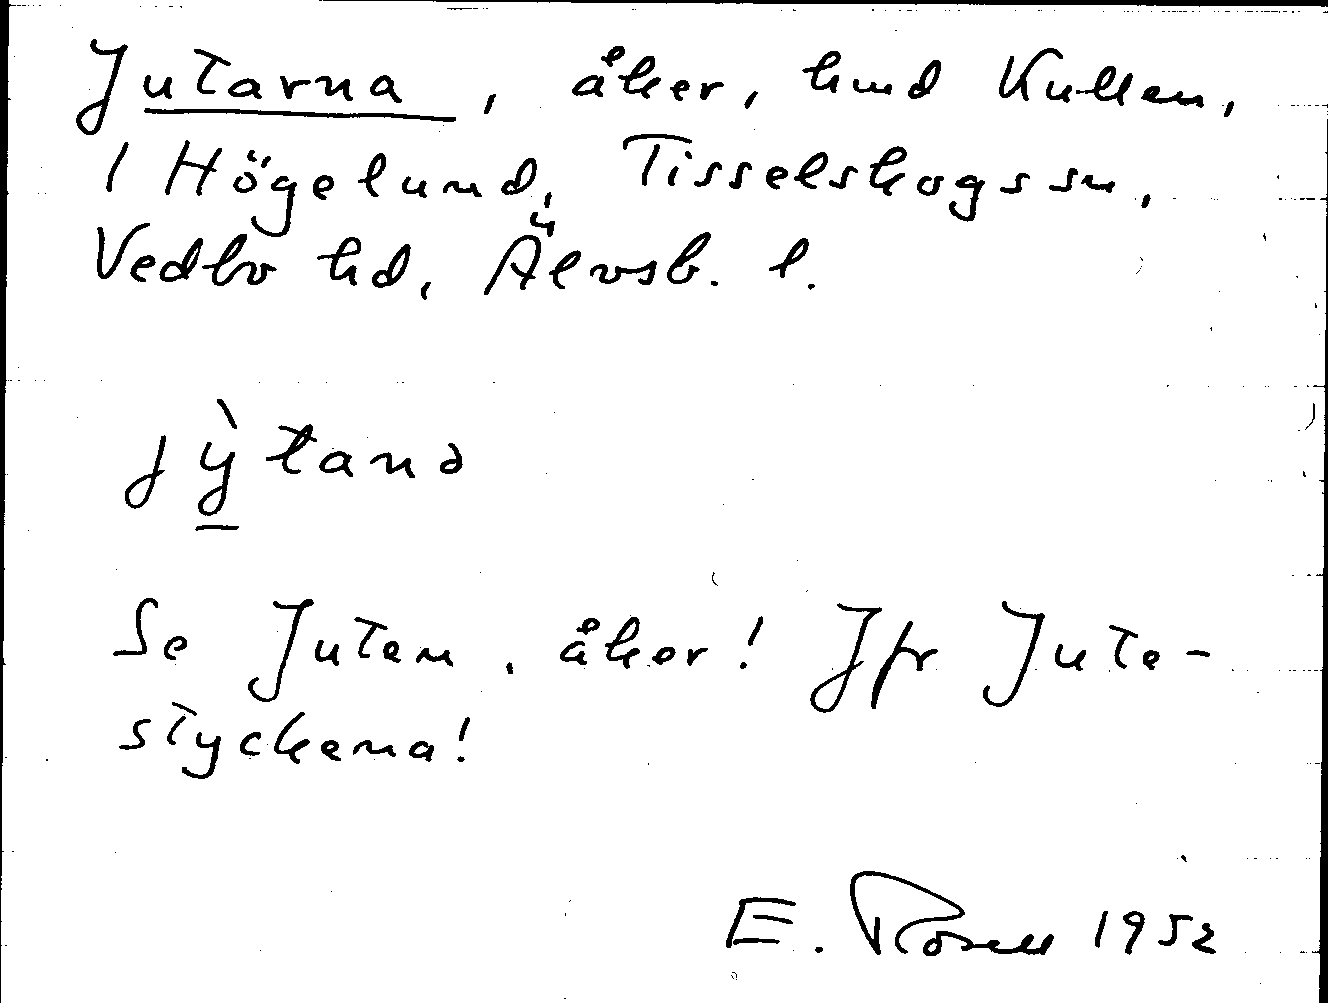 Jutarna, åker, hmd Kullen,
1 Högelund, Tisselskogs sn,
Vedbo hd, Älvsb. l.
jỳtana
Se Juten, åker! Jfr Jute-
styckena!
E. Rosell 1952